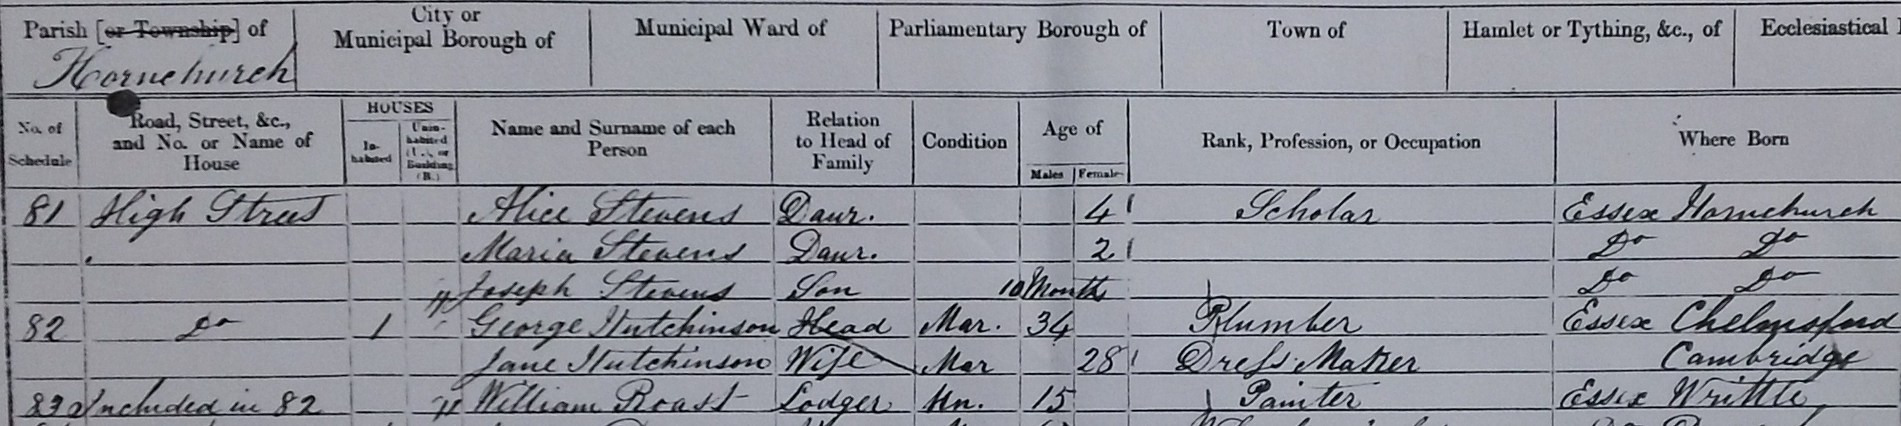 Parish [or Township] of City or Municipal Borough of Municipal Ward of Parliamentary Borough of Town of Hamlet or Tything, &c., of Ecclesiastical
Hornchurch
No. of Schedule Road, Street, &c., and No. or Name of House HOUSES In-habited Unin-habited (U.), or Building (B.) Name and Surname of each Person Relation to Head of Family Condition Age of Males Females Rank, Profession, or Occupation Where Born
81 High Street Alice Stevens Daur. 4 Scholar Essex Hornchurch
Maria Stevens Daur. 2 Do Do
Joseph Stevens Son 10 Months Do Do
82 Do 1 George Hutchinson Head Mar. 34 Plumber Essex Chelmsford
Jane Hutchinson Wife Mar 28 Dress Maker Cambridge
Included in 82 William Roast Lodger Un. 15 Painter Essex Writtle